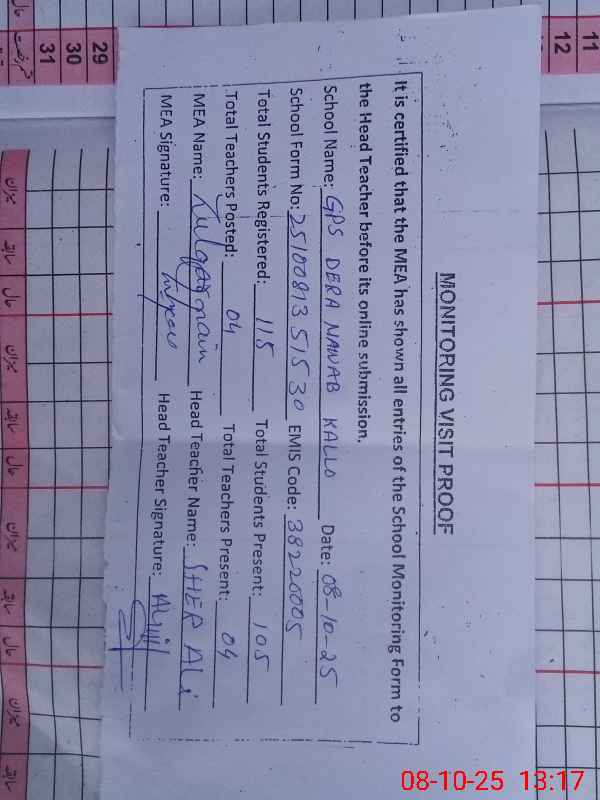 MONITORING VISIT PROOF
It is certified that the MEA has shown all entries of the School Monitoring Form to
the Head Teacher before its online submission.
School Name: GPS DERA NAWAB KALLO Date: 08-10-25
School Form No: 25100813 51530 EMIS Code: 38220005
Total Students Registered: 115 Total Students Present: 105
Total Teachers Posted: 04 Total Teachers Present: 04
MEA Name: Zulqarnain Head Teacher Name: SHER ALi
MEA Signature: Head Teacher Signature:
11
12
29
30
31
میزان
سابقہ
حال
میزان
سابقہ
حال
میزان
سابقہ
حال
میزان
سابقہ
08-10-25 13:17